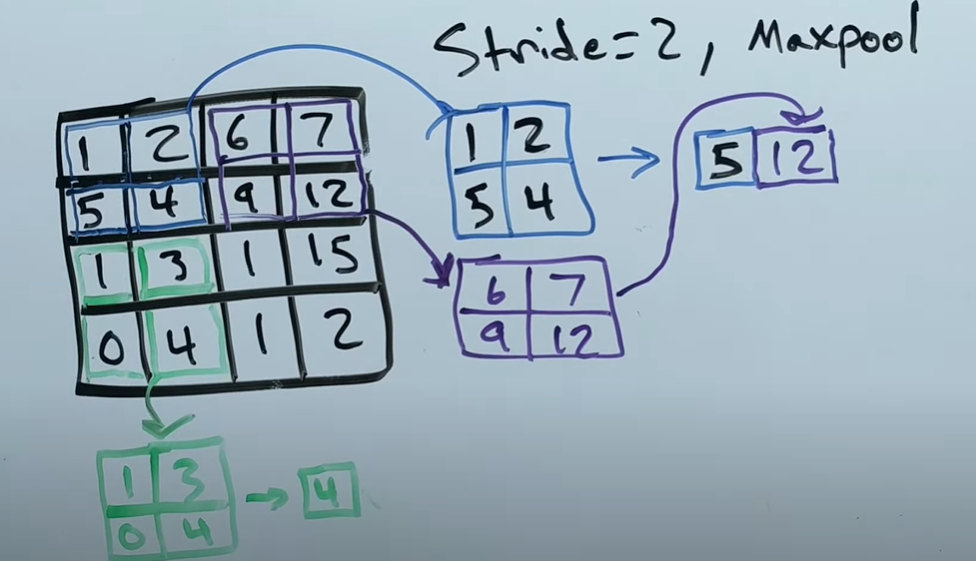 Stride=2, Maxpool
1 2 6 7
5 4 9 12
1 3 1 15
0 4 1 2
1 2
5 4
5 12
6 7
9 12
1 3
0 4
4